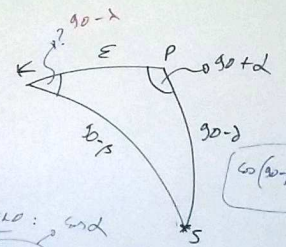 ? 90-λ
ε P 90+α
90-β 90-δ
*S
cos(90-
: cosα